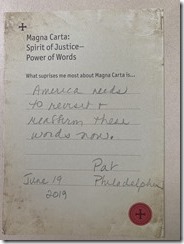 Magna Carta:
Spirit of Justice—
Power of Words
What suprises me most about Magna Carta is...
America needs
to revisit &
reaffirm these
words now.
Pat
June 19 Philadelphia
2019